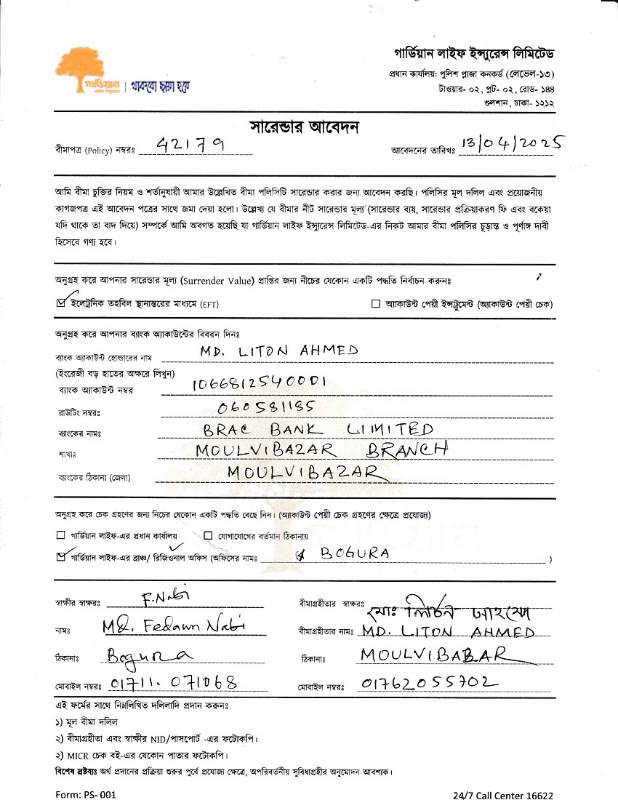 গার্ডিয়ান লাইফ ইন্স্যুরেন্স লিমিটেড
প্রধান কার্যালয়: পুলিশ প্লাজা কনকর্ড (লেভেল-১৩)
টাওয়ার- ০২, প্লট- ০২, রোড- ১৪৪
গুলশান, ঢাকা- ১২১২
গার্ডিয়ান | থাকবো ছায়া হয়ে
সারেন্ডার আবেদন
বীমাপত্র (Policy) নম্বরঃ 42179 আবেদনের তারিখঃ 13/04/2025
আমি বীমা চুক্তির নিয়ম ও শর্তানুযায়ী আমার উল্লেখিত বীমা পলিসিটি সারেন্ডার করার জন্য আবেদন করছি। পলিসির মূল দলিল এবং প্রয়োজনীয়
কাগজপত্র এই আবেদন পত্রের সাথে জমা দেয়া হলো। উল্লেখ্য যে বীমার নীট সারেন্ডার মূল্য (সারেন্ডার ব্যয়, সারেন্ডার প্রক্রিয়াকরণ ফি এবং বকেয়া
যদি থাকে তা বাদ দিয়ে) সম্পর্কে আমি অবগত হয়েছি যা গার্ডিয়ান লাইফ ইন্স্যুরেন্স লিমিটেড-এর নিকট আমার বীমা পলিসির চূড়ান্ত ও পূর্ণাঙ্গ দাবী
হিসেবে গণ্য হবে।
অনুগ্রহ করে আপনার সারেন্ডার মূল্য (Surrender Value) প্রাপ্তির জন্য নীচের যেকোন একটি পদ্ধতি নির্বাচন করুনঃ
ইলেট্রনিক তহবিল স্থানান্তরের মাধ্যমে (EFT) অ্যাকাউন্ট পেয়ী ইন্সট্রুমেন্ট (অ্যাকাউন্ট পেয়ী চেক)
অনুগ্রহ করে আপনার ব্যাংক অ্যাকাউন্টের বিবরন দিনঃ
ব্যাংক অ্যাকাউন্ট হোল্ডারের নাম MD. LITON AHMED
(ইংরেজী বড় হাতের অক্ষরে লিখুন)
ব্যাংক অ্যাকাউন্ট নম্বর 1066812540001
রাউটিং নম্বরঃ 060581185
ব্যাংকের নামঃ BRAC BANK LIMITED
শাখাঃ MOULVIBAZAR BRANCH
ব্যাংকের ঠিকানা (জেলা) MOULVIBAZAR
অনুগ্রহ করে চেক গ্রহণের জন্য নিচের যেকোন একটি পদ্ধতি বেছে নিন। (অ্যাকাউন্ট পেয়ী চেক গ্রহণের ক্ষেত্রে প্রযোজ্য)
গার্ডিয়ান লাইফ-এর প্রধান কার্যালয় যোগাযোগের বর্তমান ঠিকানায়
গার্ডিয়ান লাইফ-এর ব্রাঞ্চ/ রিজিওনাল অফিস (অফিসের নামঃ BOGURA )
স্বাক্ষীর স্বাক্ষরঃ F.Nabi বীমাগ্রহীতার স্বাক্ষরঃ মোঃ লিটন আহমেদ
নামঃ MD. Fedawn Nabi বীমাগ্রহীতার নামঃ MD. LITON AHMED
ঠিকানাঃ Bogura ঠিকানাঃ MOULVIBABAR
মোবাইল নম্বরঃ 01711.071068 মোবাইল নম্বরঃ 01762055702
এই ফর্মের সাথে নিম্নলিখিত দলিলাদি প্রদান করুনঃ
১) মূল বীমা দলিল
২) বীমাগ্রহীতা এবং স্বাক্ষীর NID/পাসপোর্ট -এর ফটোকপি।
২) MICR চেক বই-এর যেকোন পাতার ফটোকপি।
বিশেষ দ্রষ্টব্যঃ অর্থ প্রদানের প্রক্রিয়া শুরুর পূর্বে প্রযোজ্য ক্ষেত্রে, অপরিবর্তনীয় সুবিধাগ্রহীর অনুমোদন আবশ্যক।
Form: PS- 001 24/7 Call Center 16622